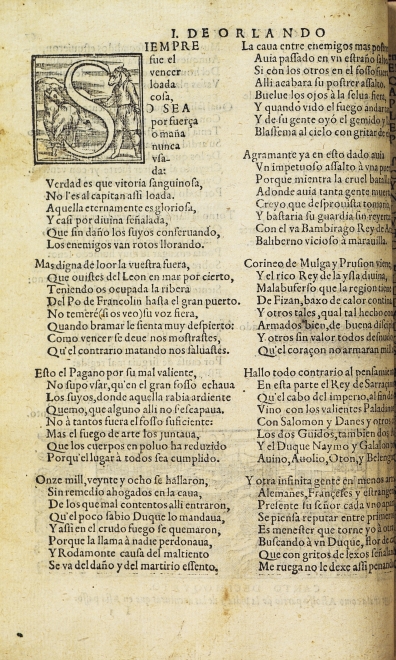 I. DE ORLANDO
SIEMPRE
fue el
vencer
loada
cosa,
O SEA
por fuerça
o maña
nunca
vsa-
da:
Verdad es que vitoria sanguinosa,
No l'es al capitan assi loada.
Aquella eternamente es gloriosa,
Y casi por diuina señalada,
Que sin daño los suyos conseruando,
Los enemigos van rotos llorando.
Mas digna de loor la vuestra fuera,
Que ouistes del Leon en mar por cierto,
Teniendo os ocupada la ribera
Del Po de Francolin hasta el gran puerto.
No temeré (si os veo) su voz fiera,
Quando bramar le sienta muy despierto:
Como vencer se deue nos mostrastes,
Qu'el contrario matando nos saluastes.
Esto el Pagano por su mal valiente,
No supo vsar, qu'en el gran fosso echaua
Los suyos, donde aquella rabia ardiente
Quemo, que alguno alli no s'escapaua.
No à tantos fuera el fosso suficiente:
Mas el fuego de arte los juntaua,
Que los cuerpos en poluo ha reduzido
Porqu'el lugar à todos sea cumplido.
Onze mill, veynte y ocho se hallaron,
Sin remedio ahogados en la caua,
De los que mal contentos alli entraron,
Qu'el poco sabio Duque lo mandaua,
Y assi en el crudo fuego se quemaron,
Porque la llama à nadie perdonaua,
Y Rodamonte causa del maltiento
Se va del daño y del martirio essento.
La caua entre enemigos mas
Auia passado en vn estraño
Si con los otros en el fosso
Alli acabara su postrer assalto.
Buelue los ojos à la selua fiera,
Y quando vido el fuego andar
Y de su gente oyó el gemido y
Blasfema al cielo con gritar de
Agramante ya en esto dado auia
Vn impetuoso assalto à vna
Porque mientra la cruel batalla
Adonde auia tanta gente
Creyo que desprouista
Y bastaria su guardia sin
Con el va Bambirago Rey de
Baliberno vicioso à marauilla.
Corineo de Mulga y Prusion
Y el rico Rey de la ysla diuina,
Malabuferso que la region tiene
De Fizan, baxo de calor
Y otros tales, qual tal hecho
Armados bien, de buena
Y otros sin valor todos
Qu'el coraçon no armaran
Hallo todo contrario al
En esta parte el Rey de
Qu'el cabo del imperio, al fin
Vino con los valientes
Con Salomon y Danes y otros
Los dos Guidos, tambien dos
Y el Duque Naymo y
Auino, Auolio, Oton, y
Y otra infinita gente en menos
Alemanes, Françeses y
Presente su señor cada vno
Se piensa reputar entre
Es menester que torne yo à
Buscando à vn Duque, flor de
Que con gritos de lexos
Me ruega no le dexe assi